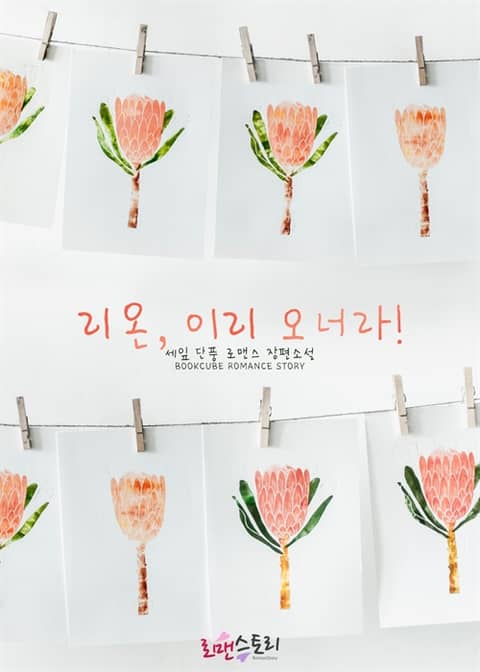 리온, 이리 오너라!
세잎 단풍 로맨스 장편소설
BOOKCUBE ROMANCE STORY
로맨스토리
RomanStory